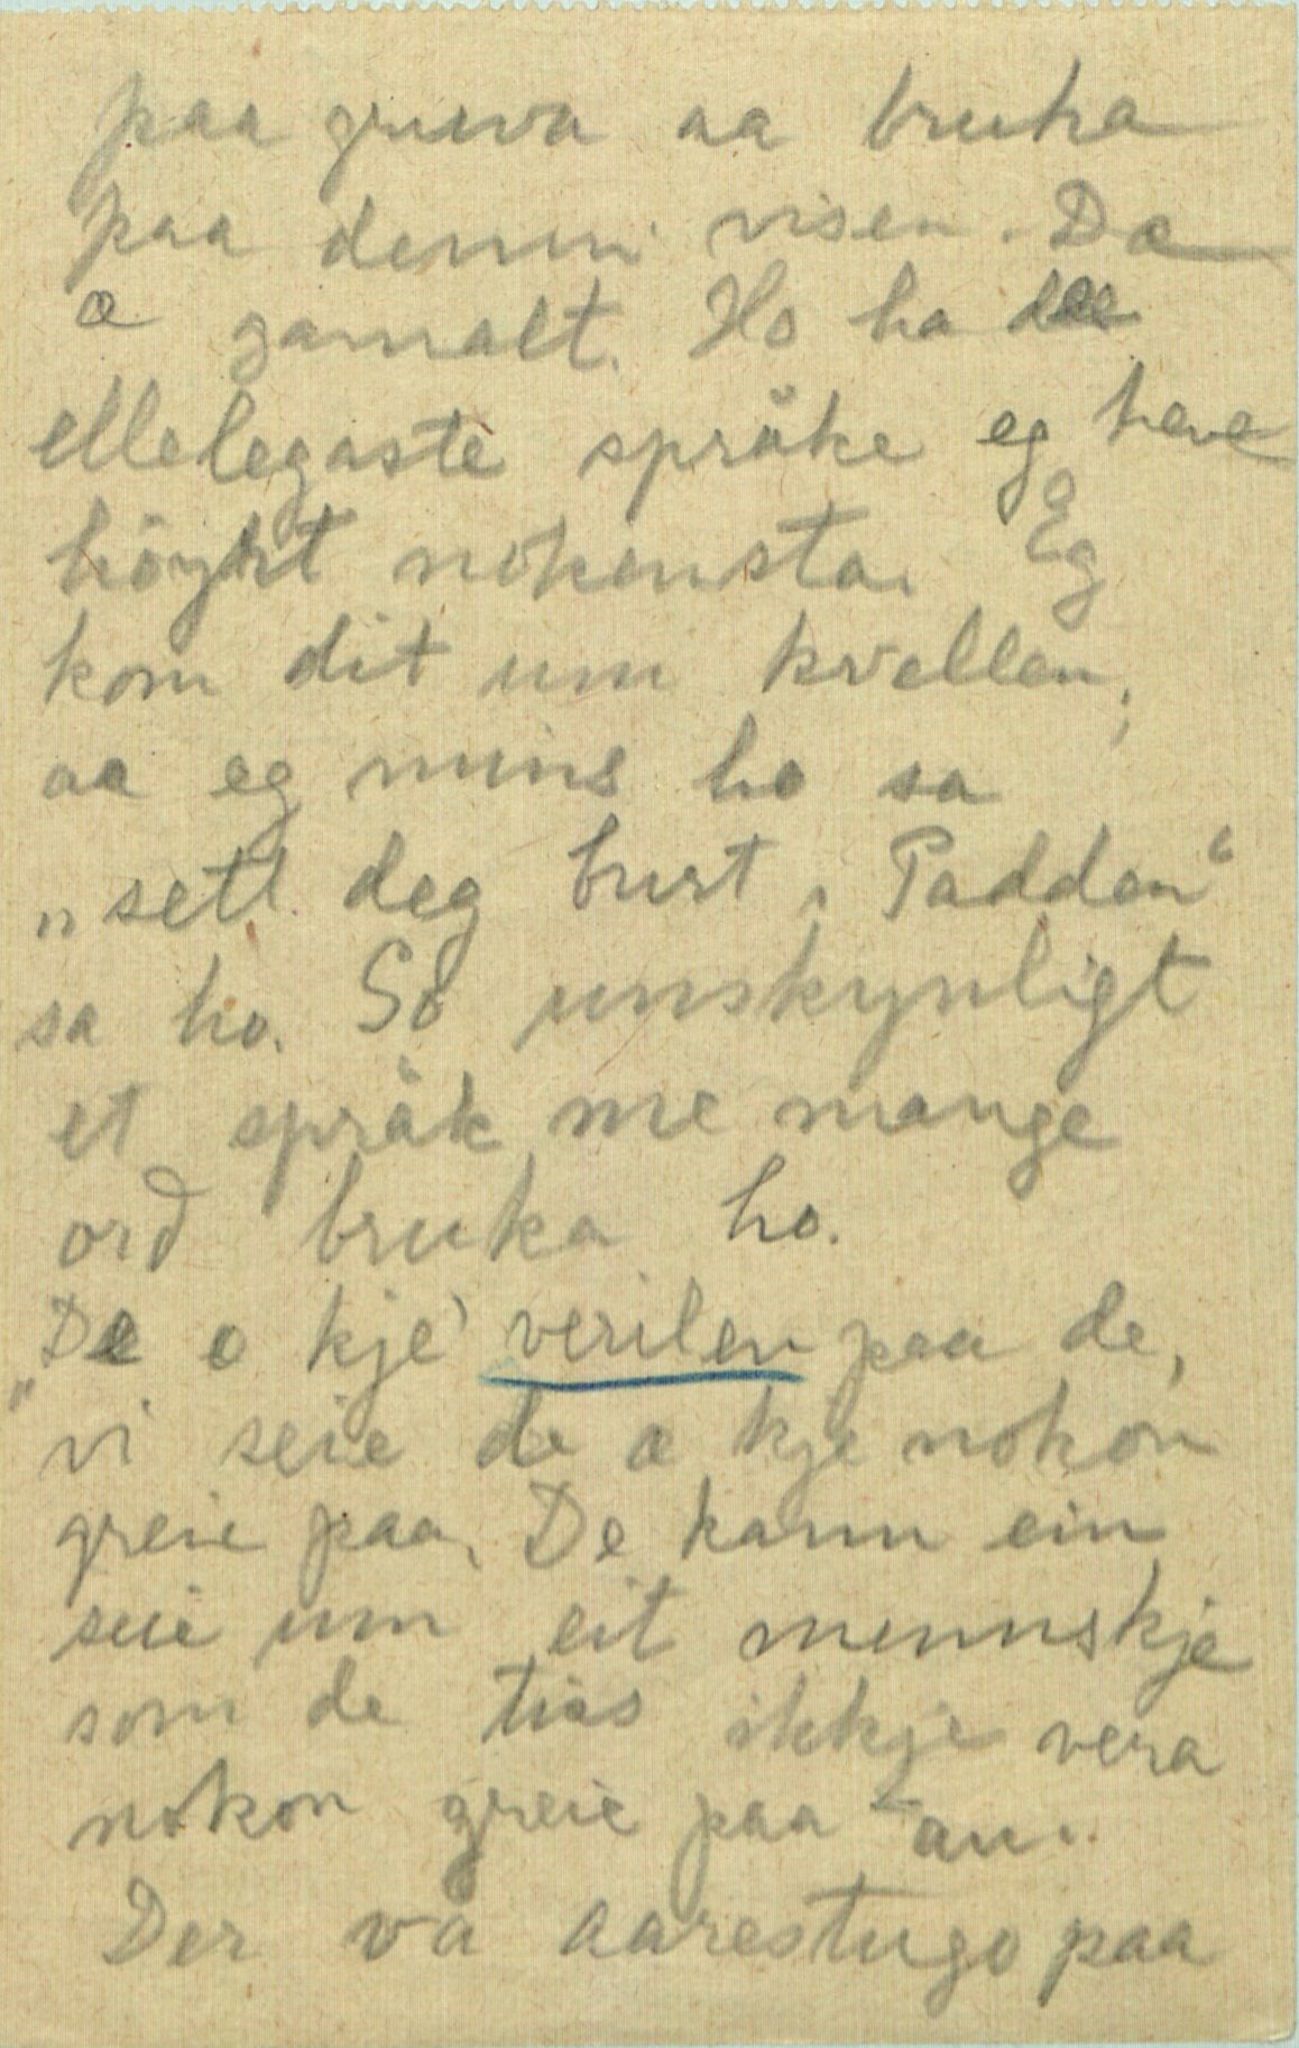 paa gruva aa bruka
paa denni visen. Dæ
æ gamalt. Ho ha
ellelegaste språke eg have
höyrt nokensta. Eg
kom dit um kvellen,
aa eg mins ho sa
„sett deg burt, Padden“
sa ho. So unskynligt
et språk me mange
ord bruka ho.
„De o kje' verilen paa de,
vi seie de æ kje nokon
greie paa. De kann ein
seie um eit mennskje
som de tias ikkje vera
nokon greie paa an.
Der va aarestugo paa